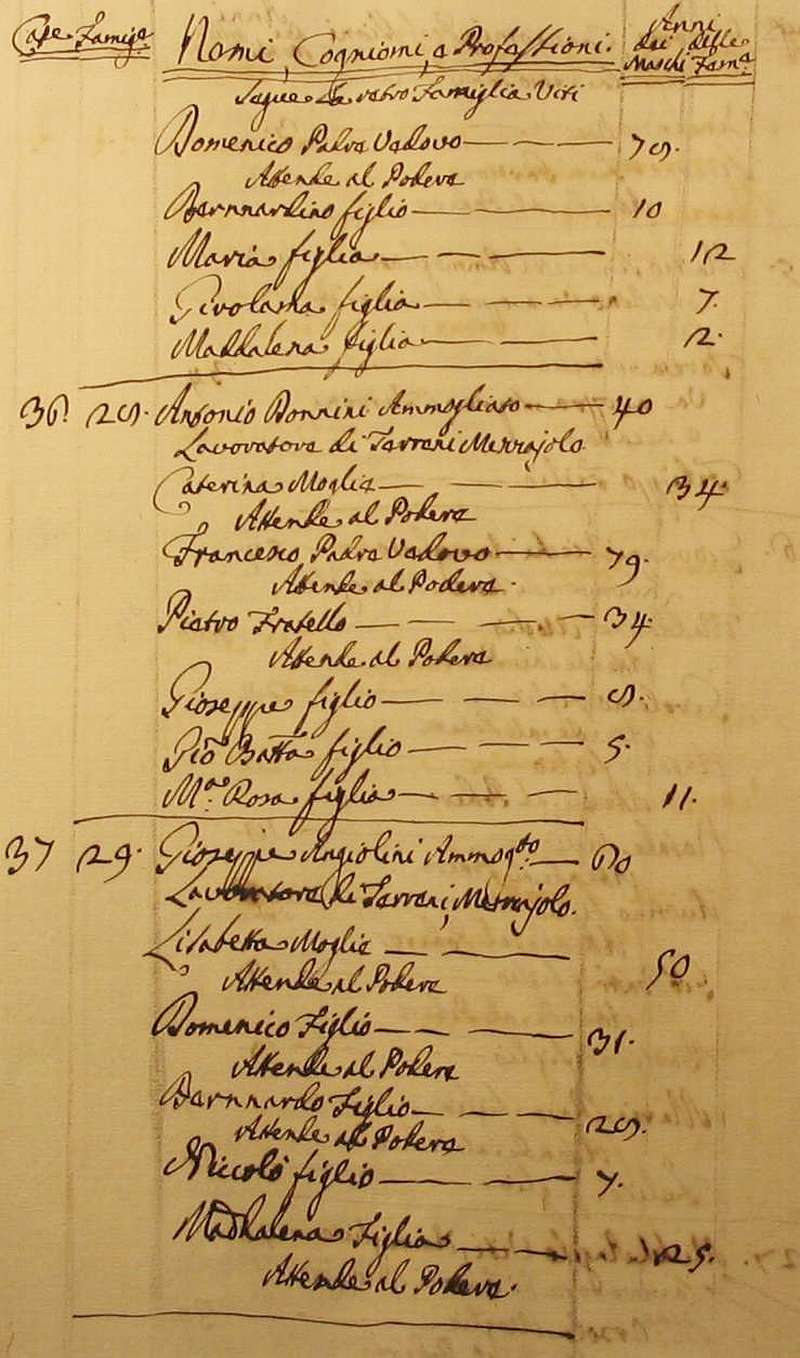 Case Famig.e Nomi, Cognomi, e Professioni. Anni
dei Maschi delle Fem.e
Segue la retro Famiglia Viti
Domenico Padre Vedovo 78.
Attende al Podere
Bernnardino figlio 10
Maria figlia 12
Girolama figlia 7.
Maddalena figlia 2.
36. 28. Antonio Donnini Ammogliato 40
Lavoratore di Terreni Mezzajolo
Caterina Moglie 34.
Attende al Podere
Francesco Padre Vedovo 79.
Attende al Podere.
Pietro Fratello 34.
Attende al Podere
Gioseppe figlio 8.
Gio: Batta figlio 5.
M.a Rosa figlia 11.
37 29. Gioseppe Angiolini Ammog.to 60
Lavoratore di Terreni, Mezzajolo.
Lisabetta Moglie 50
Attende al Podere
Domenico Figlio 31.
Attende al Podere
Bernnardo Figlio 28.
Attende al Podere
Niccolò figlio 7.
Maddalena Figlia 25.
Attende al Podere.